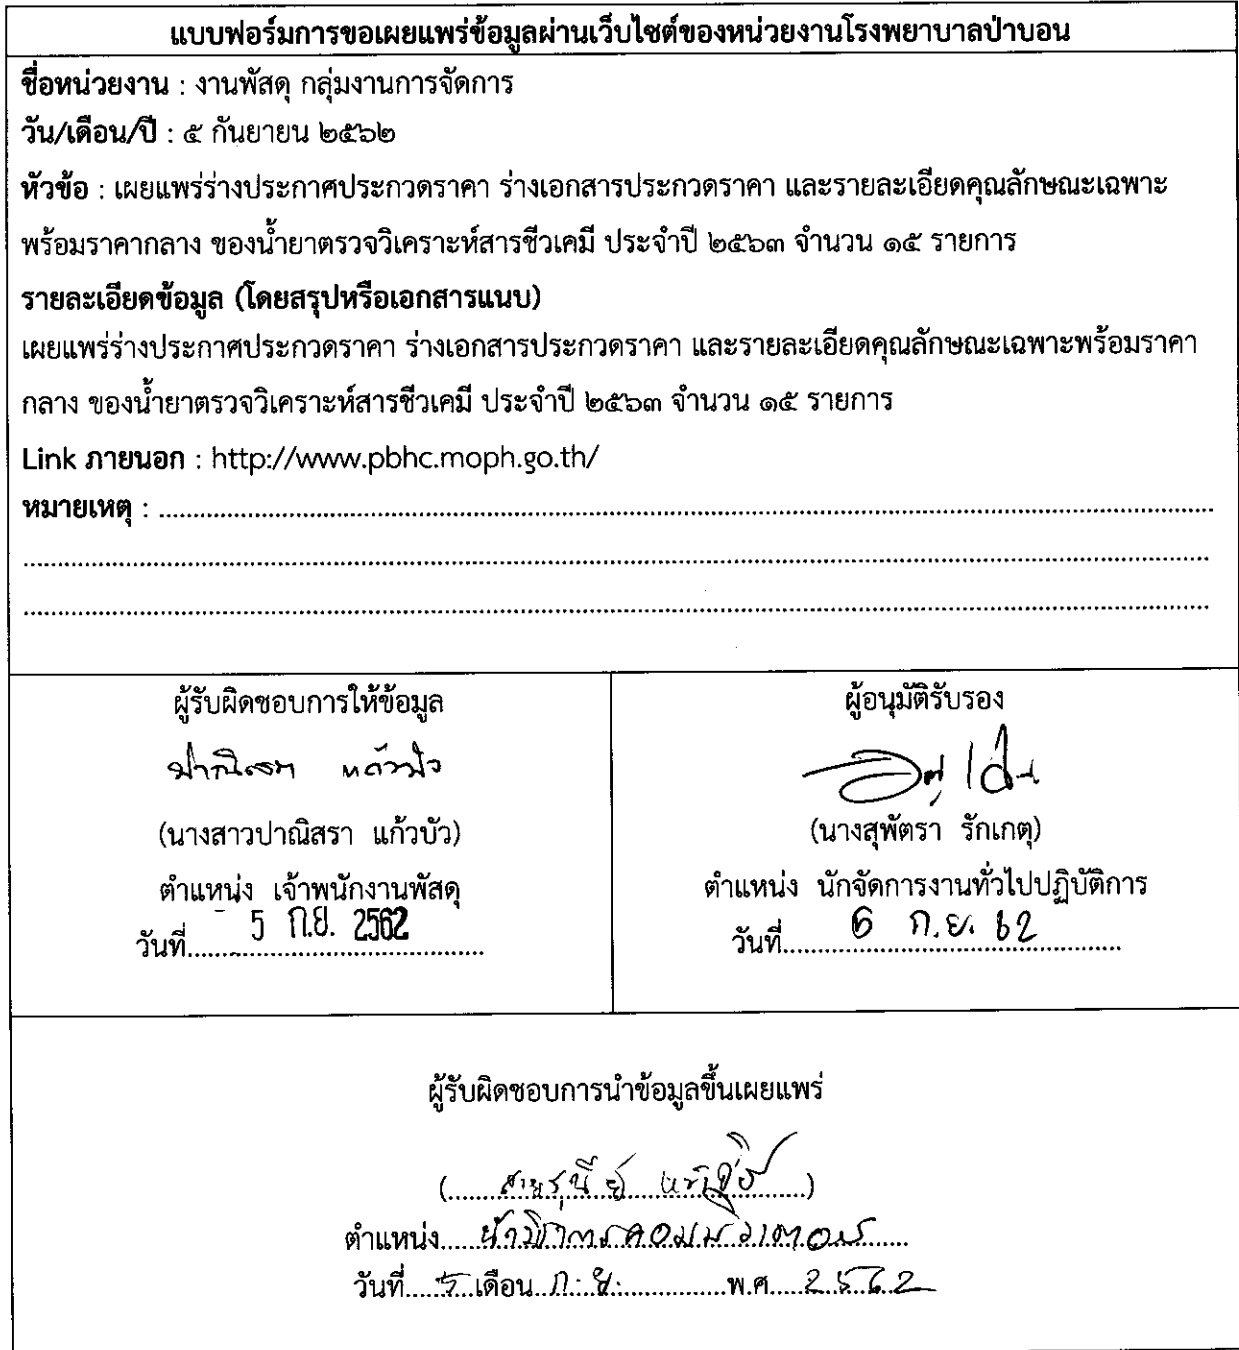 แบบฟอร์มการขอเผยแพร่ข้อมูลผ่านเว็บไซต์ของหน่วยงานโรงพยาบาลป่าบอน
ชื่อหน่วยงาน : งานพัสดุ กลุ่มงานการจัดการ
วัน/เดือน/ปี : ๕ กันยายน ๒๕๖๒
หัวข้อ : เผยแพร่ร่างประกาศประกวดราคา ร่างเอกสารประกวดราคา และรายละเอียดคุณลักษณะเฉพาะ
พร้อมราคากลาง ของน้ำยาตรวจวิเคราะห์สารชีวเคมี ประจำปี ๒๕๖๓ จำนวน ๑๕ รายการ
รายละเอียดข้อมูล (โดยสรุปหรือเอกสารแนบ)
เผยแพร่ร่างประกาศประกวดราคา ร่างเอกสารประกวดราคา และรายละเอียดคุณลักษณะเฉพาะพร้อมราคา
กลาง ของน้ำยาตรวจวิเคราะห์สารชีวเคมี ประจำปี ๒๕๖๓ จำนวน ๑๕ รายการ
Link ภายนอก : http://www.pbhc.moph.go.th/
หมายเหตุ :
ผู้รับผิดชอบการให้ข้อมูล
ปาณิสรา แก้วบัว
(นางสาวปาณิสรา แก้วบัว)
ตำแหน่ง เจ้าพนักงานพัสดุ
วันที่ 5 ก.ย. 2562
ผู้อนุมัติรับรอง
(นางสุพัตรา รักเกตุ)
ตำแหน่ง นักจัดการงานทั่วไปปฏิบัติการ
วันที่ 6 ก.ย. 62
ผู้รับผิดชอบการนำข้อมูลขึ้นเผยแพร่
ตำแหน่ง นักวิชาการคอมพิวเตอร์
วันที่ 5 เดือน ก.ย. พ.ศ. 2562